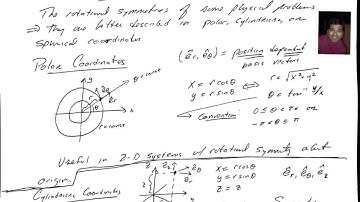 The rotational symmetries of some physical problems
⇒ they are better described in polar, cylindrical, or
spherical coordinates
Polar Coordinates
(ê_r, ê_θ) = position dependent
basis vectors
y
θ = const
ê_θ
ê_r
x
r = const
x = r cos θ
y = r sin θ
r = √x² + y²
θ = tan⁻¹ y/x
Convention:
0 ≤ θ < 2π or
-π < θ ≤ π
Useful in 2-D systems w/ rotational symmetry about
origin.
Cylindrical Coordinates
z
ê_z
ê_θ
ê_r
x = r cos θ
y = r sin θ
z = z
ê_r, ê_θ, ê_z